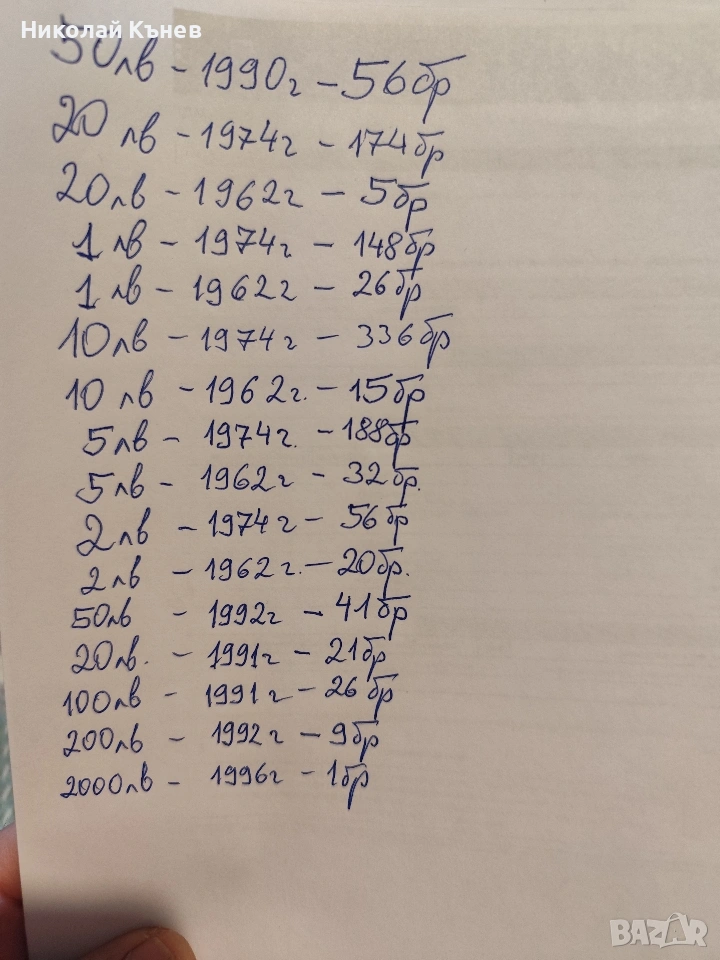 Николай Кънев
50лв - 1990г - 56бр
20 лв - 1974г - 174бр
20лв - 1962г - 5бр
1 лв - 1974г - 148бр
1 лв - 1962г - 26бр
10лв - 1974г - 336бр
10 лв - 1962г. - 15бр
5лв - 1974г. - 188бр
5лв - 1962г - 32бр.
2лв - 1974г - 56бр
2лв - 1962г. - 20бр.
50лв - 1992г - 41бр
20лв. - 1991г - 21бр
100лв - 1991г - 26бр
200лв - 1992г - 9бр
2000лв - 1996г - 1бр
BAZAR